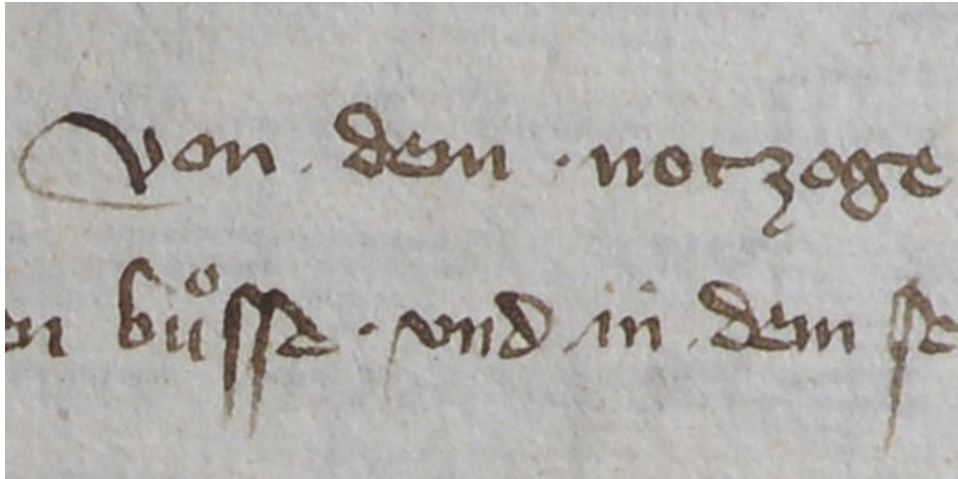 von . dem · notzoge
en bůsse · vnd in dem se